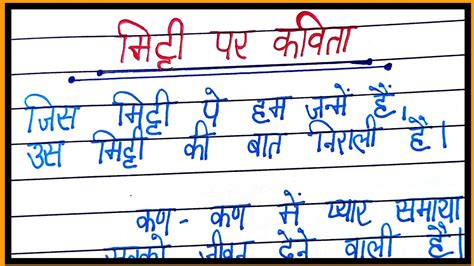 मिट्टी पर कविता
जिस मिट्टी पे हम जन्में हैं,
उस मिट्टी की बात निराली है।
कण - कण में प्यार समाया
सबको जीवन देने वाली है।